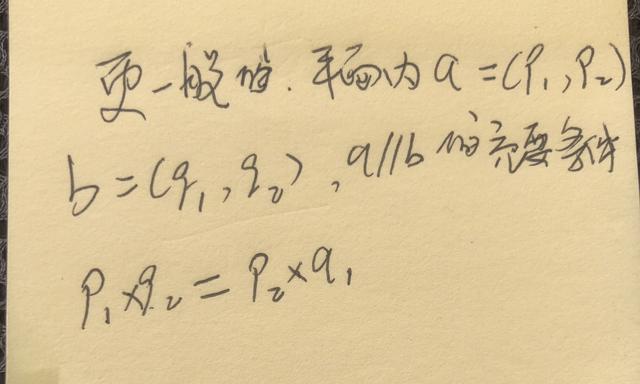 更一般的.平面内 a=(p₁,p₂)
b=(q₁,q₂),a//b 的充要条件
p₁×q₂=p₂×q₁